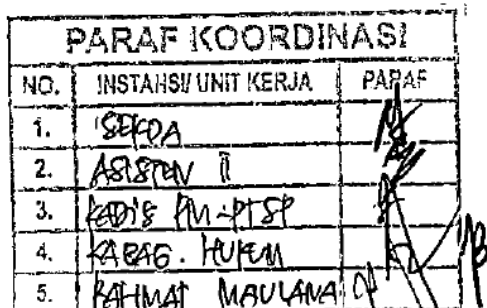 PARAF KOORDINASI
NO. INSTANSI/ UNIT KERJA PARAF
1. SEKDA
2. ASISTEN II
3. KADIS PM-PTSP
4. KABAG. HUKUM
5. RAHMAT MAULANA